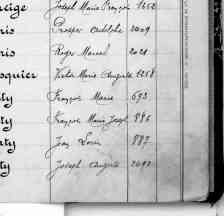 Joseph Marie François 1252
ris Prosper Adolphe 2009
ris Roger Marcel 2021
squier Victor Marie Auguste 1258
ty François Marie 693
ty François Marie Joseph 886
ty Jean Louis 887
ty Joseph Auguste 2092